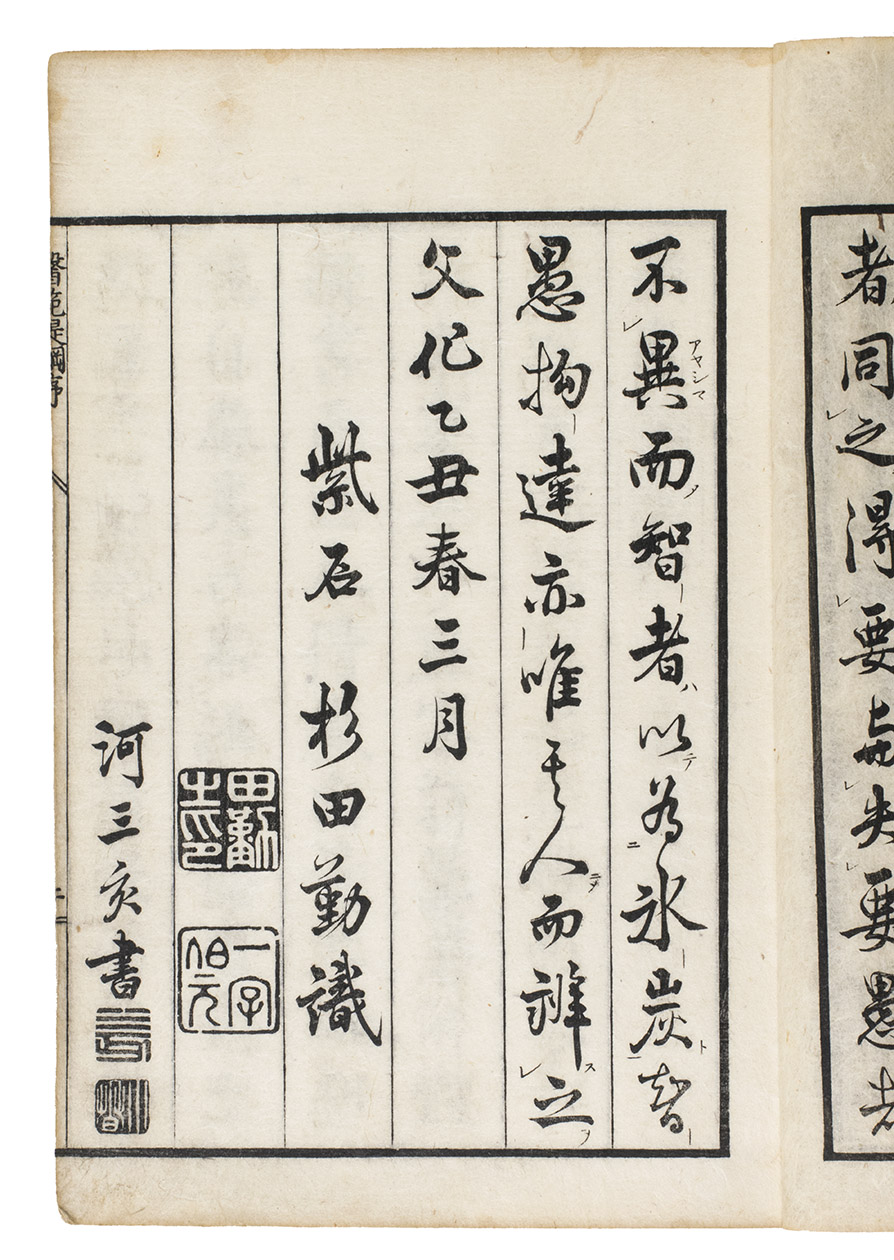 者同之得要与失要愚者
不異而智者以為氷炭智
愚拘達亦唯其人而辨之
文化乙丑春三月
紫石 杉田勤識
田勤之印
一字伯元
河三亥書
醫範提綱序